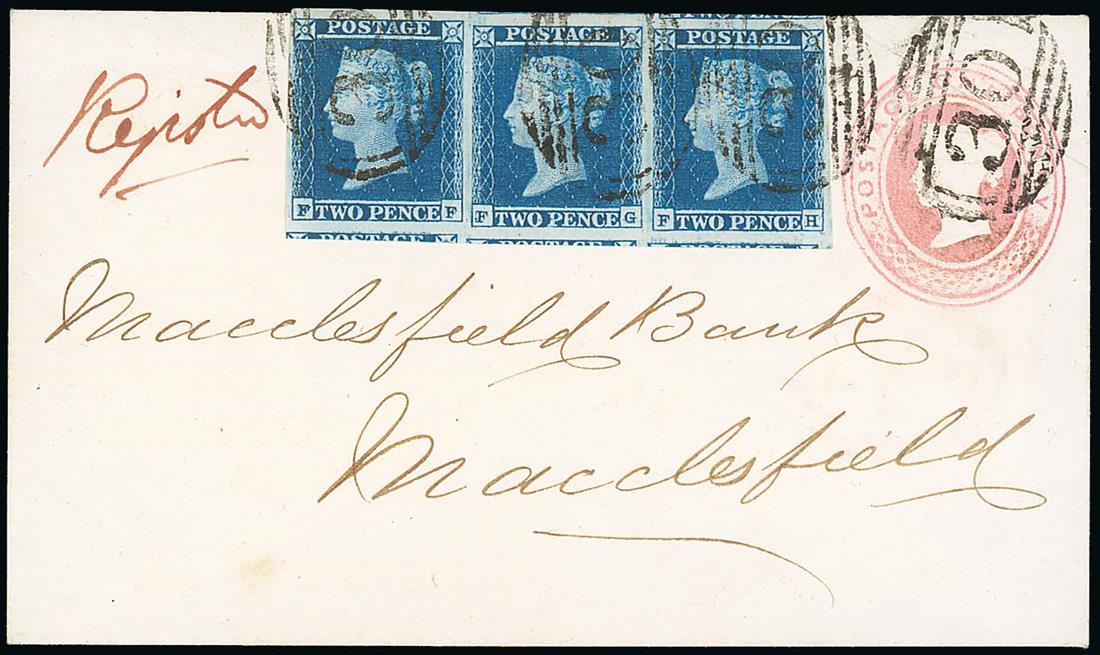 POSTAGE POSTAGE POSTAGE
F TWO PENCE F F TWO PENCE G F TWO PENCE H
POSTAGE ONE PENNY
Macclesfield Bank
Macclesfield